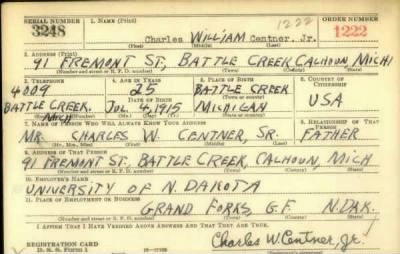 SERIAL NUMBER 1. NAME (Print) 1222 ORDER NUMBER
3248 Charles WILLIAM Centner, Jr. 1222
(First) (Middle) (Last)
2. ADDRESS (Print)
91 FREMONT ST., BATTLE CREEK, CALHOUN, MICHI
(Number and street or R. F. D. number) (Town) (County) (State)
3. TELEPHONE 4. AGE IN YEARS 5. PLACE OF BIRTH 6. COUNTRY OF CITIZENSHIP
4009 25 BATTLE CREEK
DATE OF BIRTH (Town or county) USA
BATTLE CREEK, MICH JUL 4, 1915 MICHIGAN
(Exchange) (Number) (Mo.) (Day) (Yr.) (State or country)
7. NAME OF PERSON WHO WILL ALWAYS KNOW YOUR ADDRESS 8. RELATIONSHIP OF THAT PERSON
MR. CHARLES W. CENTNER, SR. FATHER
(Mr., Mrs., Miss) (First) (Middle) (Last)
9. ADDRESS OF THAT PERSON
91 FREMONT ST., BATTLE CREEK, CALHOUN, MICH
(Number and street or R. F. D. number) (Town) (County) (State)
10. EMPLOYER'S NAME
UNIVERSITY OF N. DAKOTA
11. PLACE OF EMPLOYMENT OR BUSINESS
GRAND FORKS, G.F. N.DAK.
(Number and street or R. F. D. number) (Town) (County) (State)
I AFFIRM THAT I HAVE VERIFIED ABOVE ANSWERS AND THAT THEY ARE TRUE.
REGISTRATION CARD
D. S. S. Form 1 Charles W. Centner, Jr.